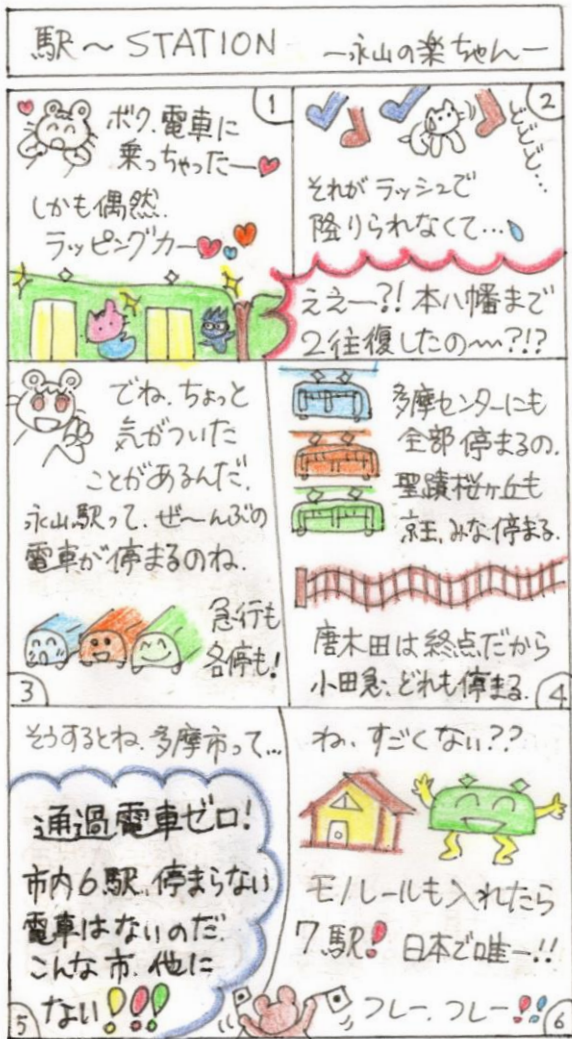 駅～STATION ―永山の楽ちゃん―
1
ボク、電車に
乗っちゃったー
しかも偶然、
ラッピングカー
2
どどど…
それがラッシュで
降りられなくて…
ええー?!本八幡まで
2往復したの～?!?
でね、ちょっと
気がついた
ことがあるんだ。
永山駅って、ぜ～んぶの
電車が停まるのね。
急行も
各停も!
3
多摩センターにも
全部停まるの。
聖蹟桜ヶ丘も
京王、みな停まる。
唐木田は終点だから
小田急、どれも停まる。
4
そうするとね、多摩市って…
通過電車ゼロ!
市内6駅、停まらない
電車はないのだ。
こんな市、他に
ない!!!
5
ね、すごくない??
モノレールも入れたら
7駅!日本で唯一!!
フレー、フレー!!
6